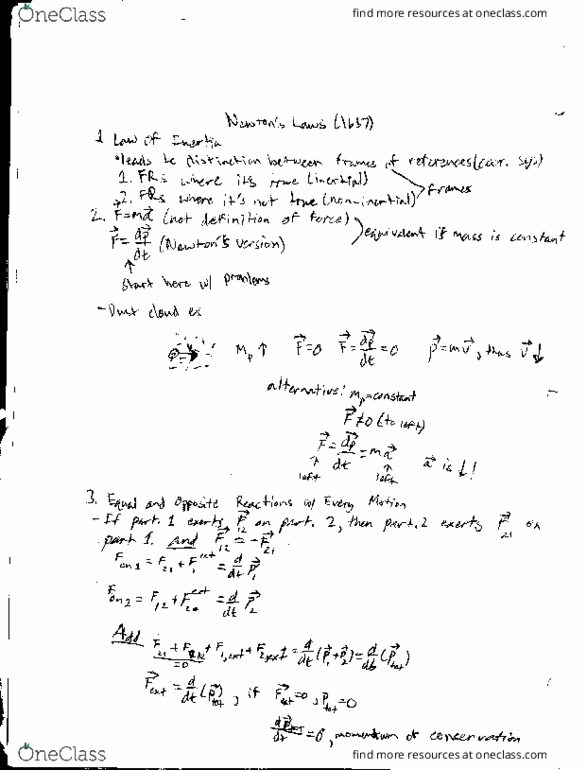 OneClass
find more resources at oneclass.com
Newton's Laws (1687)
1 Law of Inertia
*leads to distinction between frames of references (coor. sys.)
1. FRs where its true (inertial)
2. FRs where it's not true (non-inertial)
frames
2. F⃗=ma⃗ (not definition of force)
F⃗ = dp⃗/dt (Newton's version)
equivalent if mass is constant
↑
start here w/ problems
- Dust cloud ex
Mp ↑ F⃗=0 F⃗=dp⃗/dt=0 p⃗=mv⃗, thus v⃗↓
alternative: mp=constant
F⃗≠0 (to left)
F⃗=dp⃗/dt=ma⃗ a⃗ is ↓!
↑ left ↑ left
3. Equal and Opposite Reactions w/ Every Motion
- If part. 1 exerts F⃗12 on part. 2, then part. 2 exerts F⃗21 on
part 1. and F⃗12 = -F⃗21
Fon1 = F21 + F1ext = d/dt p⃗1
Fon2 = F12 + F2ext = d/dt p⃗2
Add F21 + F12 + F1,ext + F2,ext = d/dt (p⃗1+p⃗2) = d/dt (p⃗tot)
=0
F⃗ext = d/dt (p⃗tot), if F⃗ext=0, ptot=0
dp⃗tot/dt = 0, momentum of conservation
OneClass
find more resources at oneclass.com